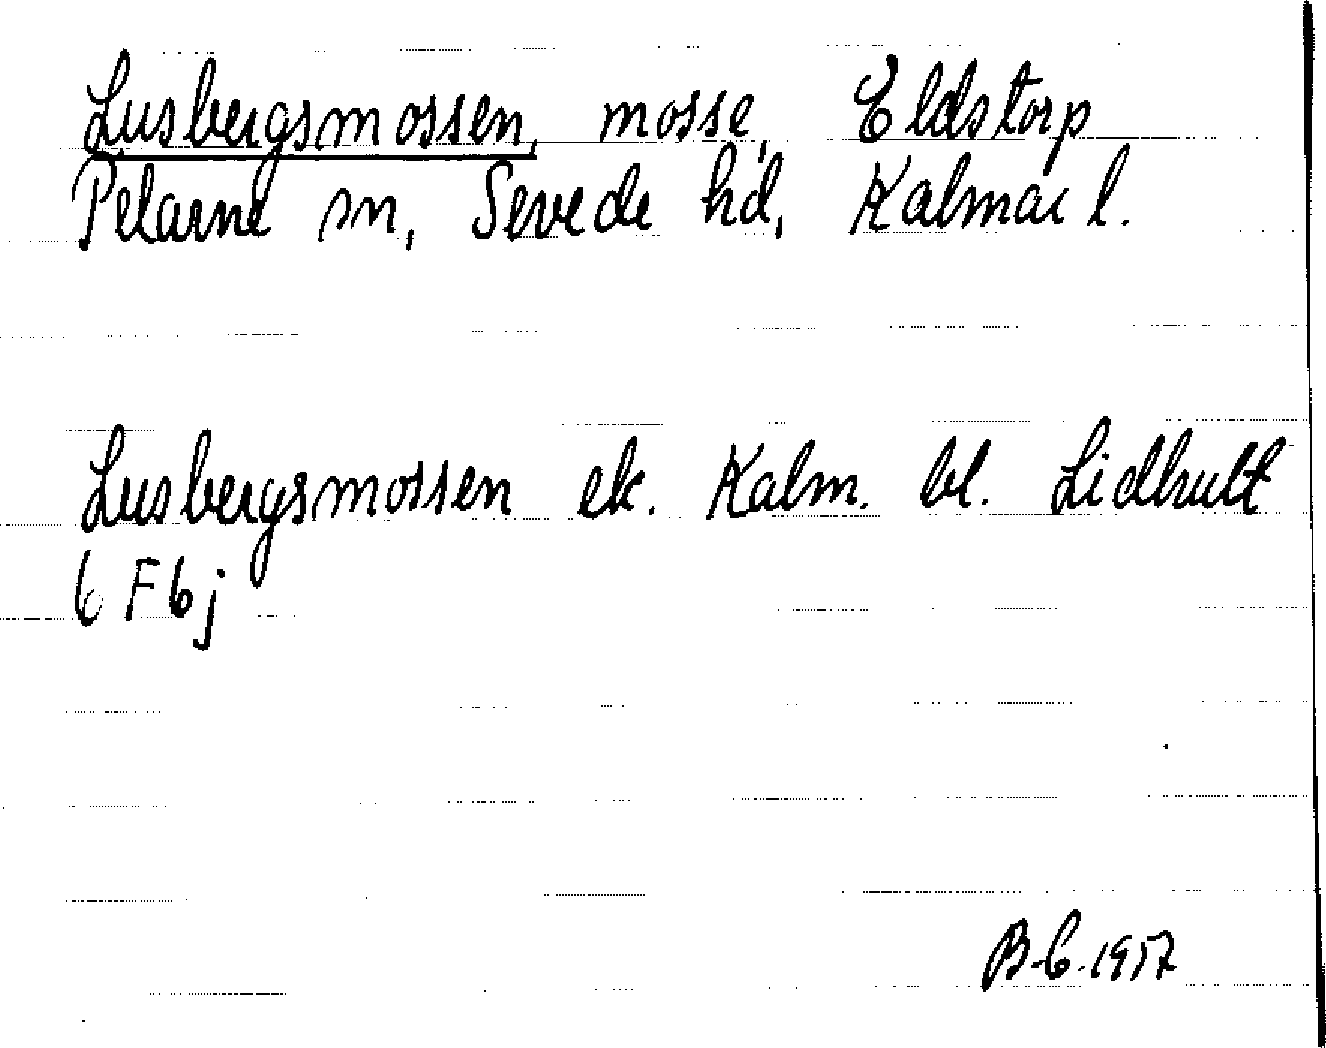 Lusbergsmossen, mosse, Eldstorp
Pelarne sn, Sevede hd, Kalmar l.
Lusbergsmossen ek. Kalm. bl. Lidhult
6 F 6 j
B-6. 1957